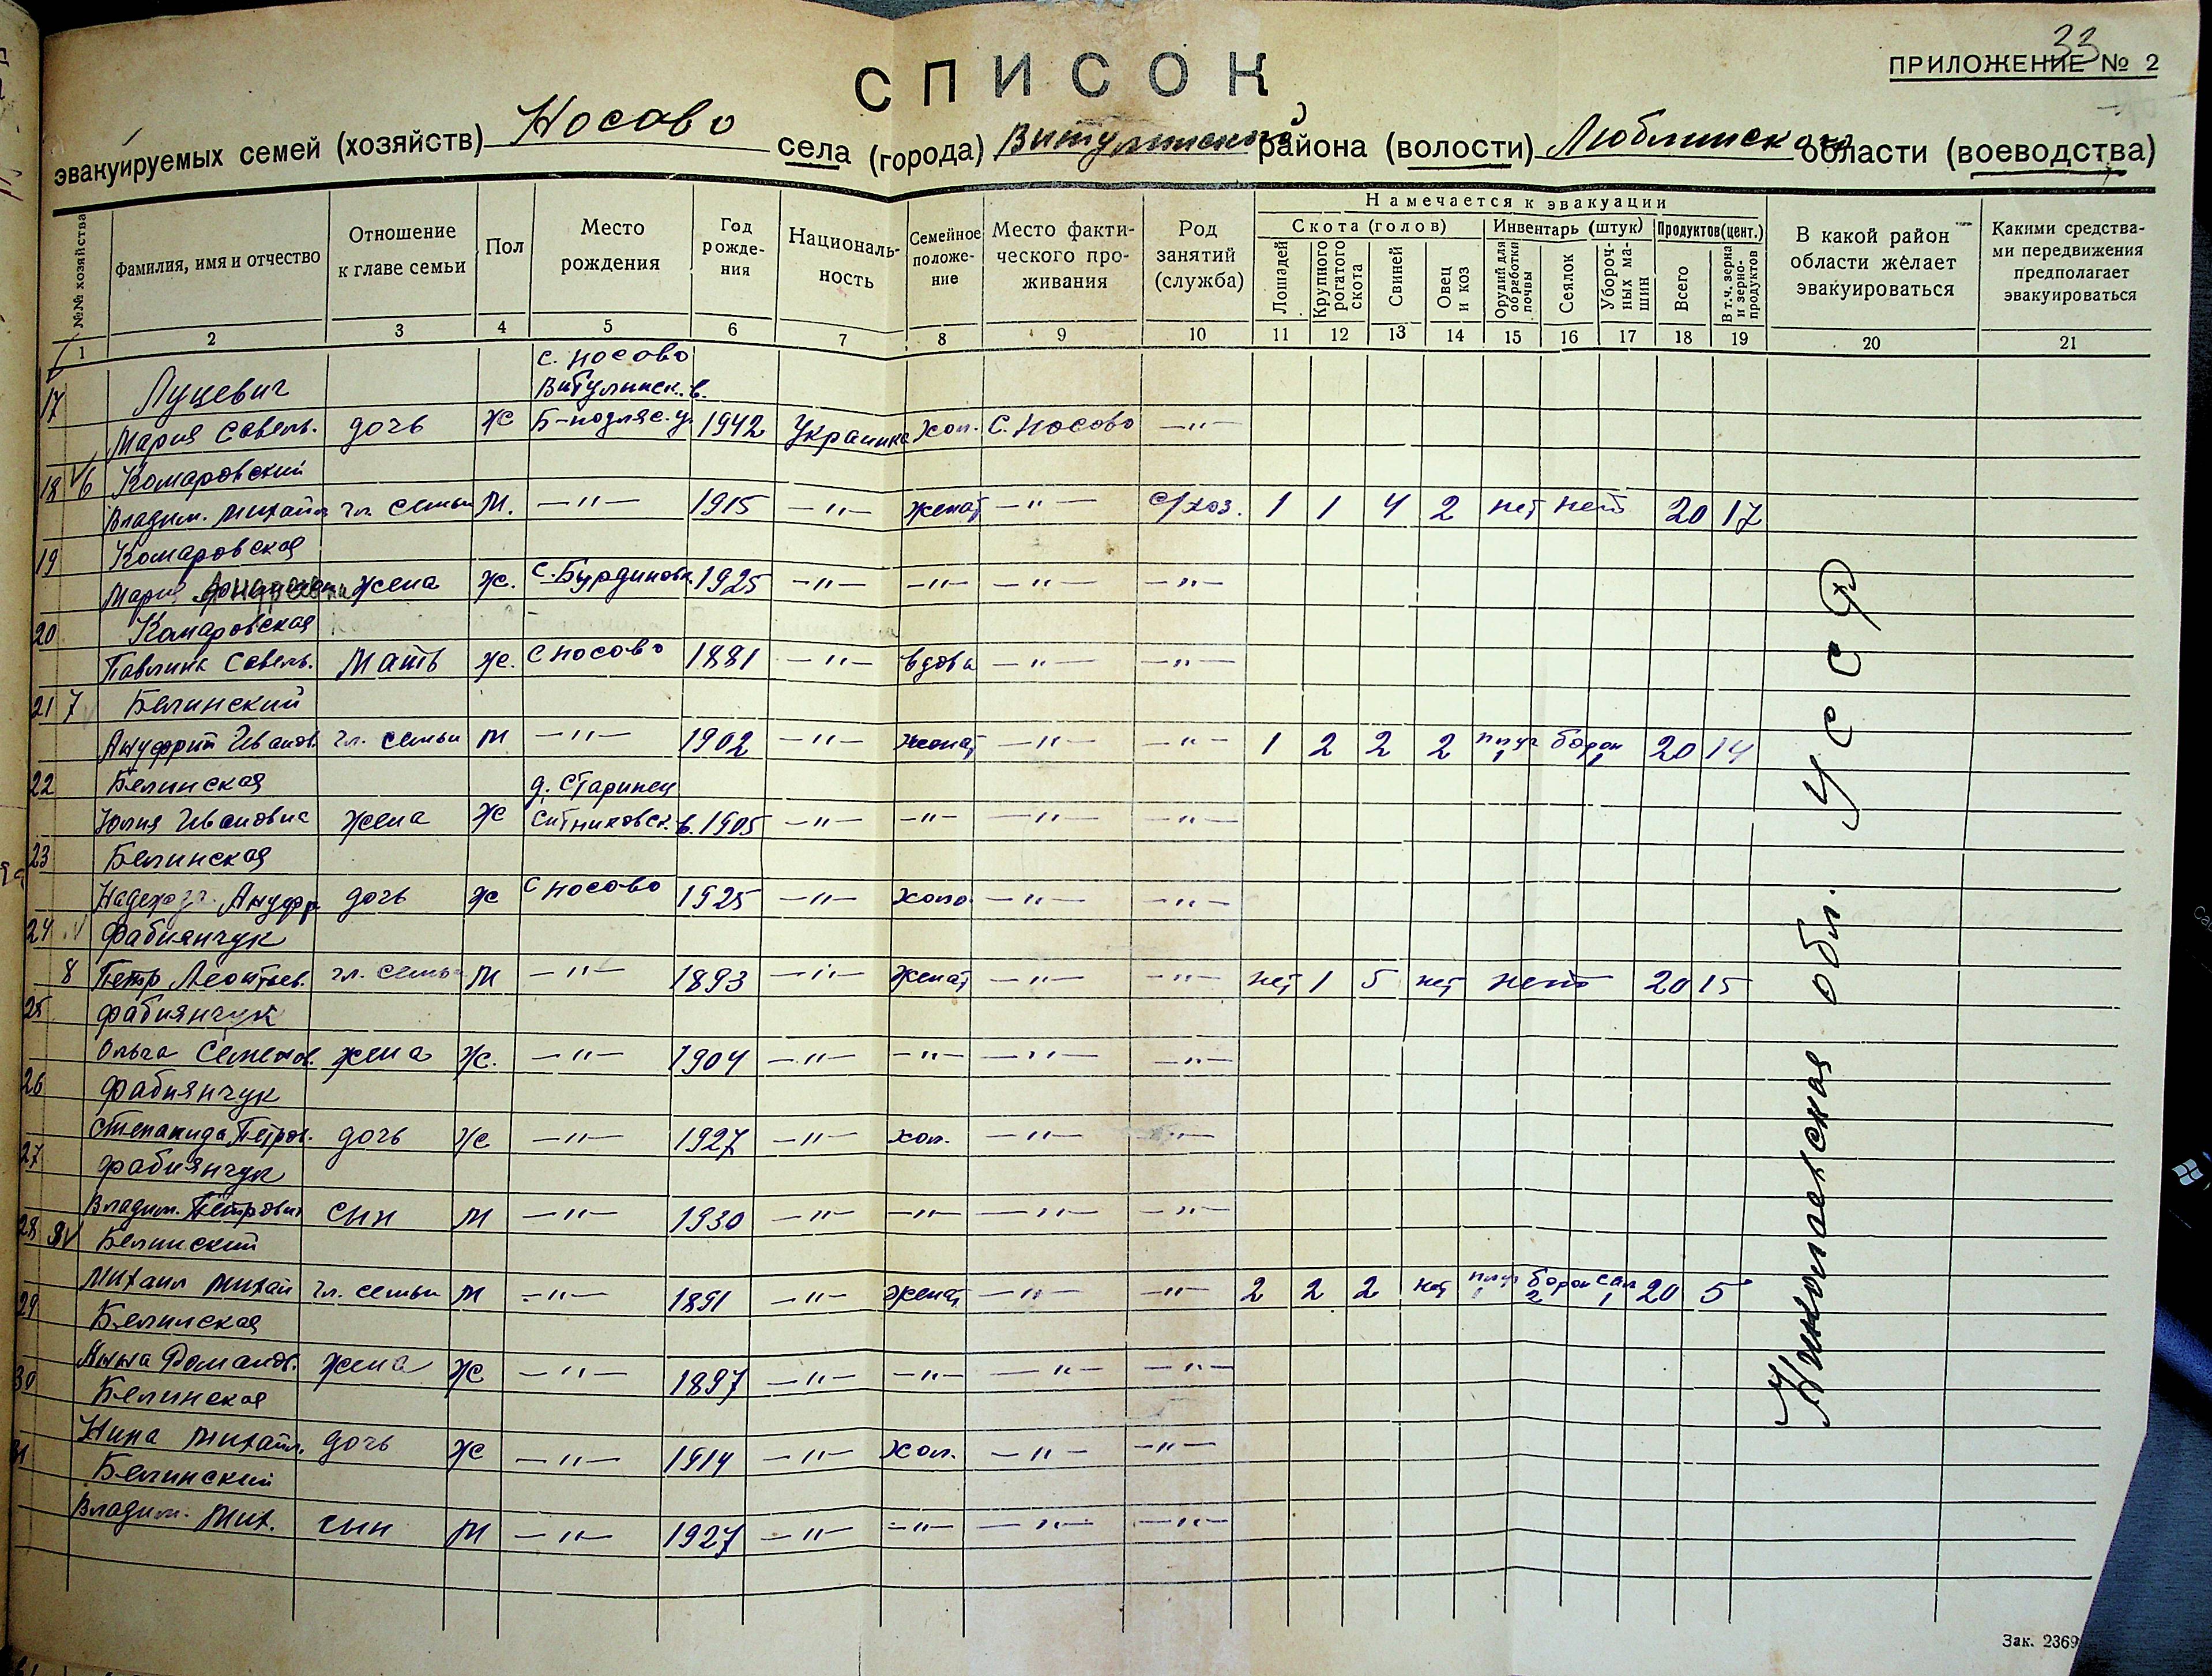 33
ПРИЛОЖЕНИЕ № 2
СПИСОК
эвакуируемых семей (хозяйств) Носово села (города) Витулинской района (волости) Люблинского области (воеводства)
№№ хозяйства
Фамилия, имя и отчество
Отношение к главе семьи
Пол
Место рождения
Год рожде-ния
Националь-ность
Семейное положе-ние
Место факти-ческого про-живания
Род занятий (служба)
Намечается к эвакуации
Скота (голов)
Инвентарь (штук)
Продуктов (цент.)
Лошадей
Крупного рогатого скота
Свиней
Овец и коз
Орудий для обработки почвы
Сеялок
Убороч-ных ма-шин
Всего
В т.ч. зерна и зерно-продуктов
В какой район области желает эвакуироваться
Какими средства-ми передвижения предполагает эвакуироваться
1 2 3 4 5 6 7 8 9 10 11 12 13 14 15 16 17 18 19 20 21
с. Носово
17 Луцевич Витулинск. в.
Мария Савель. дочь ж Б-подляс. у. 1942 Украинка хол. С. Носово —"—
18 6 Комаровский
Владим. Михайл гл семьи М. —"— 1915 —"— женат —"— с/хоз. 1 1 4 2 нет нет 20 17
19 Комаровская
Мария жена ж. с. 1925 —"— —"— —"— —"—
20 Комаровская
Павлина Савель. Мать ж. с Носово 1881 —"— вдова —"— —"—
21 7 Белинский
Ануфрий Иванов. гл. семьи м —"— 1902 —"— женат —"— —"— 1 2 2 2 плуг 1 борон 1 20 14
22 Белинская д. Старинец
Юлия Ивановна жена ж Ситниковск. в. 1905 —"— —"— —"— —"—
23 Белинская
Надежда Ануфр дочь ж с Носово 1925 —"— холо. —"— —"—
24 Фабиянчук
8 Петр Леонтьев. гл. семь м —"— 1893 —"— женат —"— —"— нет 1 5 нет нет 20 15
25 Фабиянчук
Ольга Семенов. жена ж. —"— 1904 —"— —"— —"— —"—
26 Фабиянчук
Степанида Петров. дочь ж —"— 1927 —"— хол. —"— —"—
27 Фабиянчук
Владим. Петрович сын м —"— 1930 —"— —"— —"— —"—
28 9 Белинский
Михаил Михай гл. семьи м —"— 1891 —"— женат —"— —"— 2 2 2 нет плуг 1 борон 2 1 20 5
29 Белинская
Анна Романов. жена ж —"— 1897 —"— —"— —"— —"—
30 Белинская
Нина Михайл. дочь ж —"— 1914 —"— хол. —"— —"—
31 Белинский
Владим. Мих. сын м —"— 1927 —"— —"— —"— —"—
Николаевская обл. УССР
Зак. 2369